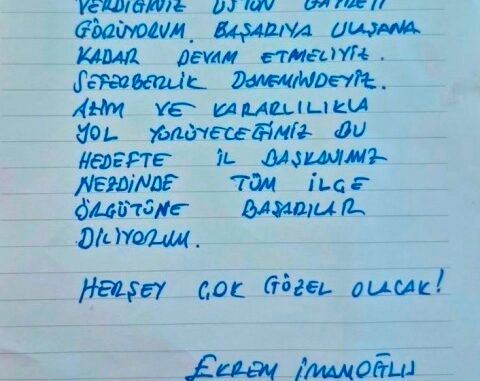 VERDİĞİNİZ ÜSTÜN GAYRETİ
GÖRÜYORUM. BAŞARIYA ULAŞANA
KADAR DEVAM ETMELİYİZ.
SEFERBERLİK DÖNEMİNDEYİZ.
AZİM VE KARARLILIKLA
YOL YÜRÜYECEĞİMİZ BU
HEDEFTE İL BAŞKANIMIZ
NEZDİNDE TÜM İLÇE
ÖRGÜTÜNE BAŞARILAR
DİLİYORUM.
HERŞEY ÇOK GÜZEL OLACAK!
EKREM İMAMOĞLU